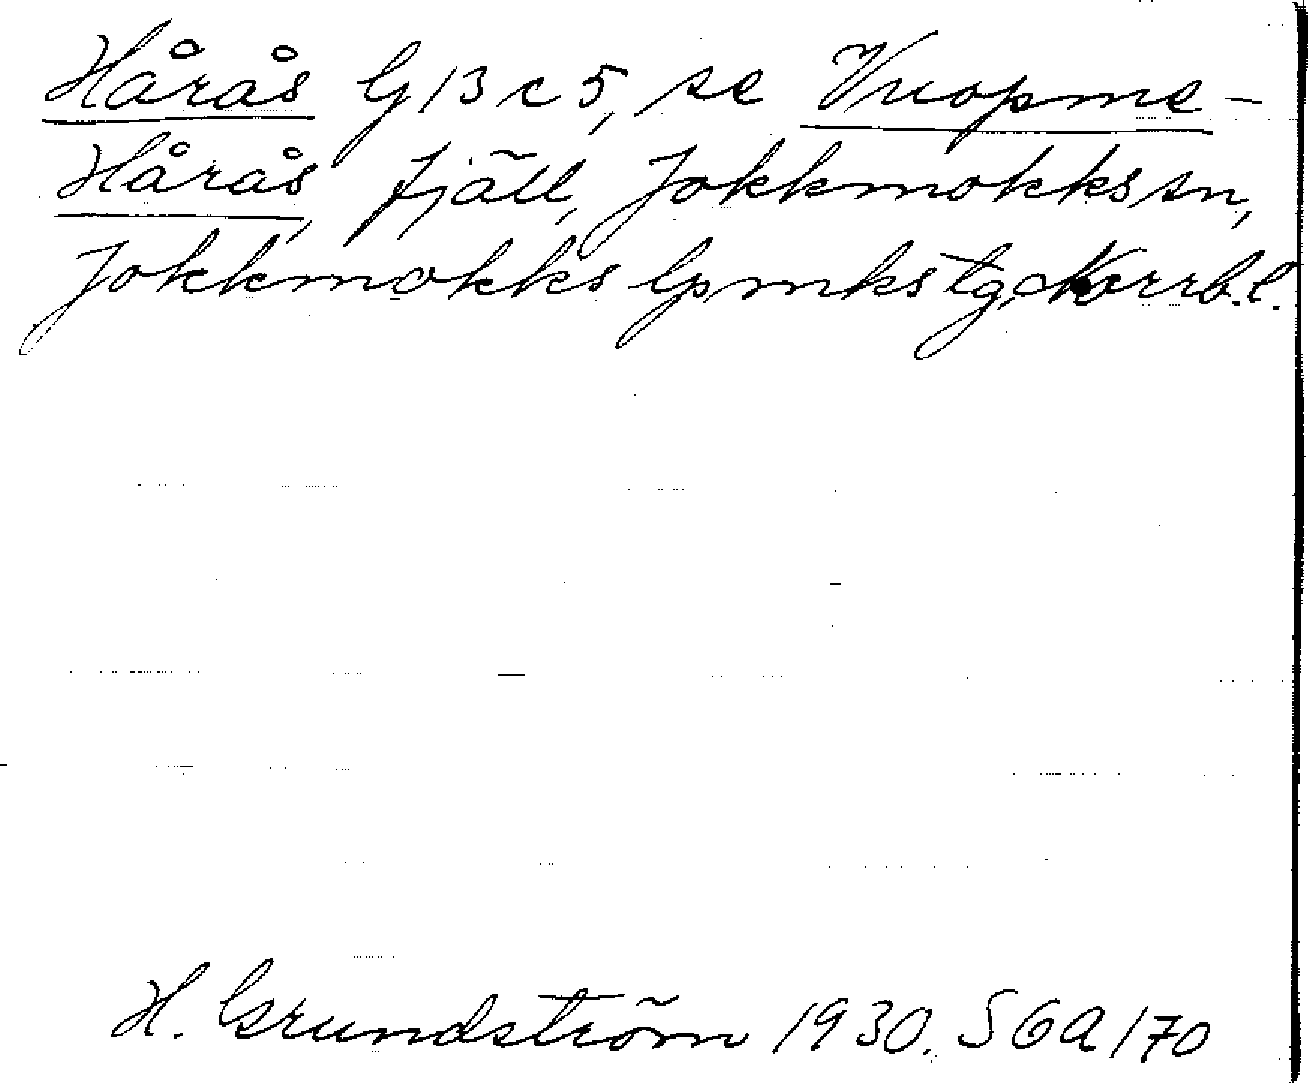 Hårås G13c5, se Vuopme-
Hårås, fjäll, Jokkmokks sn,
Jokkmokks lpmks tg, Norrb.l.
H. Grundström 1930. SGA 170